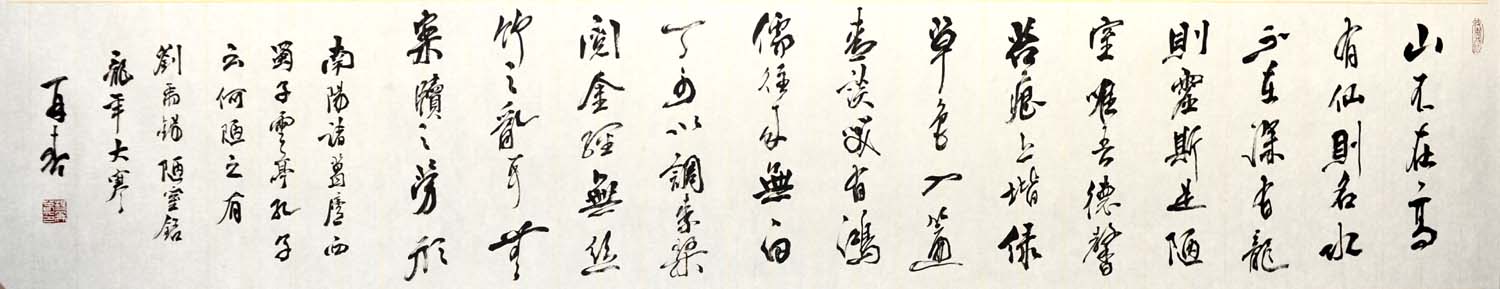 山不在高
有仙則名水
不在深有龍
則靈斯是陋
室唯吾德馨
苔痕上堦綠
草色入簾
青談笑有鴻
儒往來無白
丁可以調素琴
閱金經無絲
竹之亂耳無
案牘之勞形
南陽諸葛廬西
蜀子雲亭孔子
云何陋之有
劉禹錫陋室銘
龍年大寒